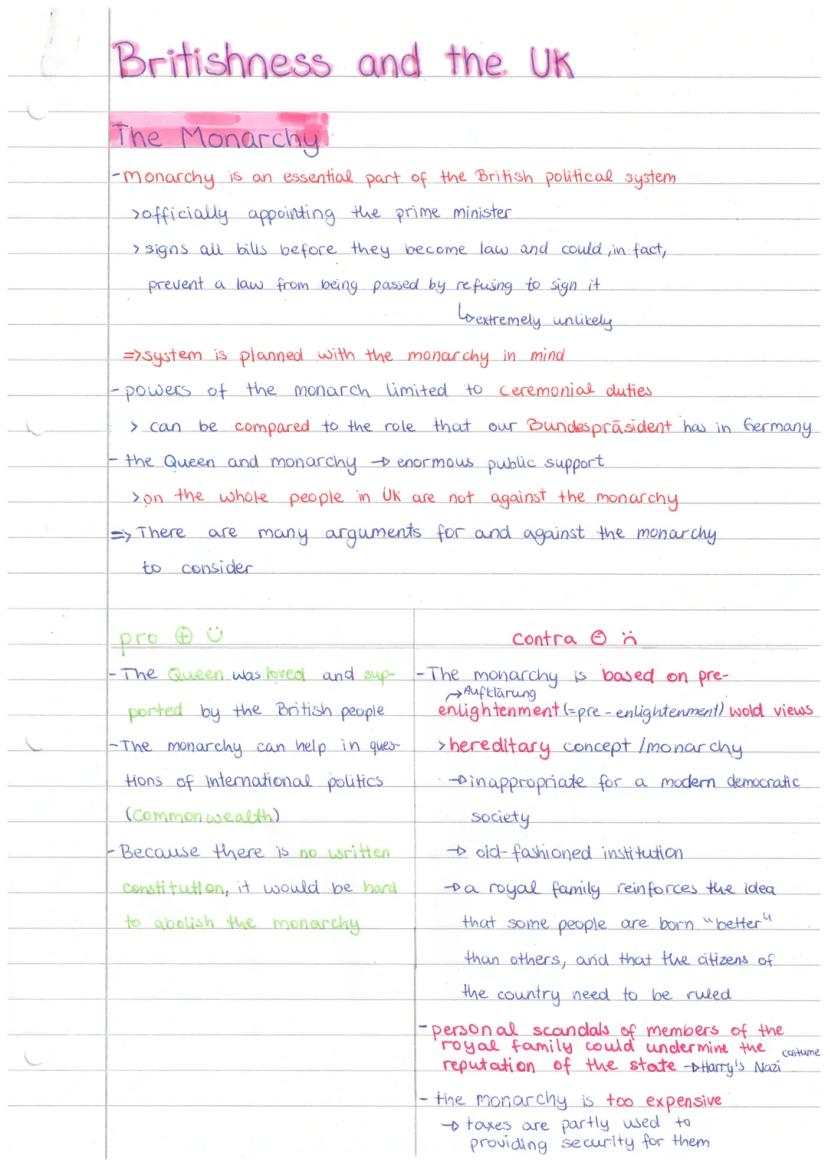 Britishness and the UK
The Monarchy
-monarchy is an essential part of the British political system
>officially appointing the prime minister
>signs all bills before they become law and could, in fact,
prevent a law from being passed by refusing to sign it
↳extremely unlikely
=>system is planned with the monarchy in mind
-powers of the monarch limited to ceremonial duties
> can be compared to the role that our Bundespräsident has in Germany
- the Queen and monarchy → enormous public support
>on the whole people in UK are not against the monarchy
=> There are many arguments for and against the monarchy
to consider
pro ⊕ ☺
-The Queen was loved and sup-
ported by the British people
-The monarchy can help in ques-
tions of international politics
(Commonwealth)
-Because there is no written
constitution, it would be hard
to abolish the monarchy
contra ⊖ ☹
-The monarchy is based on pre-
→Aufklärung
enlightenment (=pre-enlightenment) wold views
>hereditary concept/monarchy
→inappropriate for a modern democratic
society
→ old-fashioned institution
→a royal family reinforces the idea
that some people are born "better"
than others, and that the citizens of
the country need to be ruled
-personal scandals of members of the
royal family could undermine the
reputation of the state →Harry's Nazi costume
- the monarchy is too expensive
→ taxes are partly used to
providing security for them